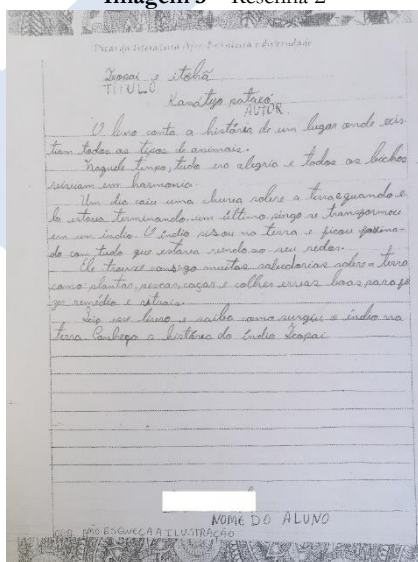 Imagem 3 – Resenha 2
Dica de Literatura Afro-Brasileira e diversidade
Txopai e itohã
TITULO
Kanátyo pataxó
AUTOR
O livro conta a história de um lugar onde exis
tiam todos os tipos de animais.
Naquele tempo, tudo era alegria e todos os bichos
viviam em harmonia.
Um dia caiu uma chuva sobre a terra e quando e
la estava terminando, um último pingo se transformou
em um índio. O índio pisou na terra e ficou
do com tudo que estava vendo ao seu redor.
Ele trouxe consigo muitas sabedorias sobre a terra
como: plantar, pescar, caçar e colher ervas boas para fa
zer remédio e rituais.
Leia esse livro e saiba como surgiu o índio na
terra. Conheça a história do índio Txopai
NOME DO ALUNO
NÃO ESQUEÇA A ILUSTRAÇÃO